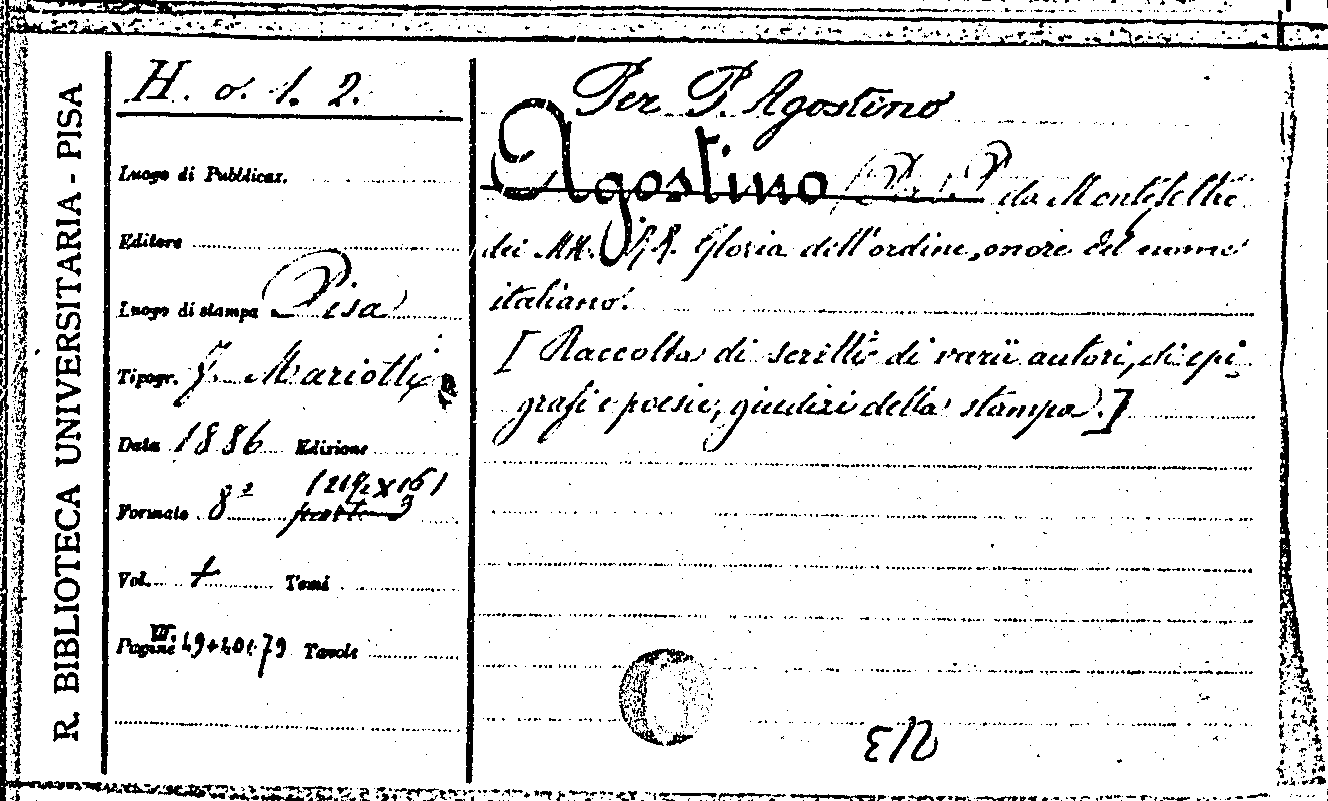 R. BIBLIOTECA UNIVERSITARIA - PISA
H. o. 1. 2.
Luogo di Pubblicaz.
Editore
Luogo di stampa Pisa
Tipogr. F. Mariotti
Data 1886 Edizione
Formato 8°
Vol. Tomi
Pagine Tavole
Per P. Agostino
Agostino (P.) da Montefeltro
dei MM. RR. Gloria dell'ordine, onore del nome
italiano.
[Raccolta di scritti di varii autori, di epi
grafi e poesie, giudizi della stampa.]